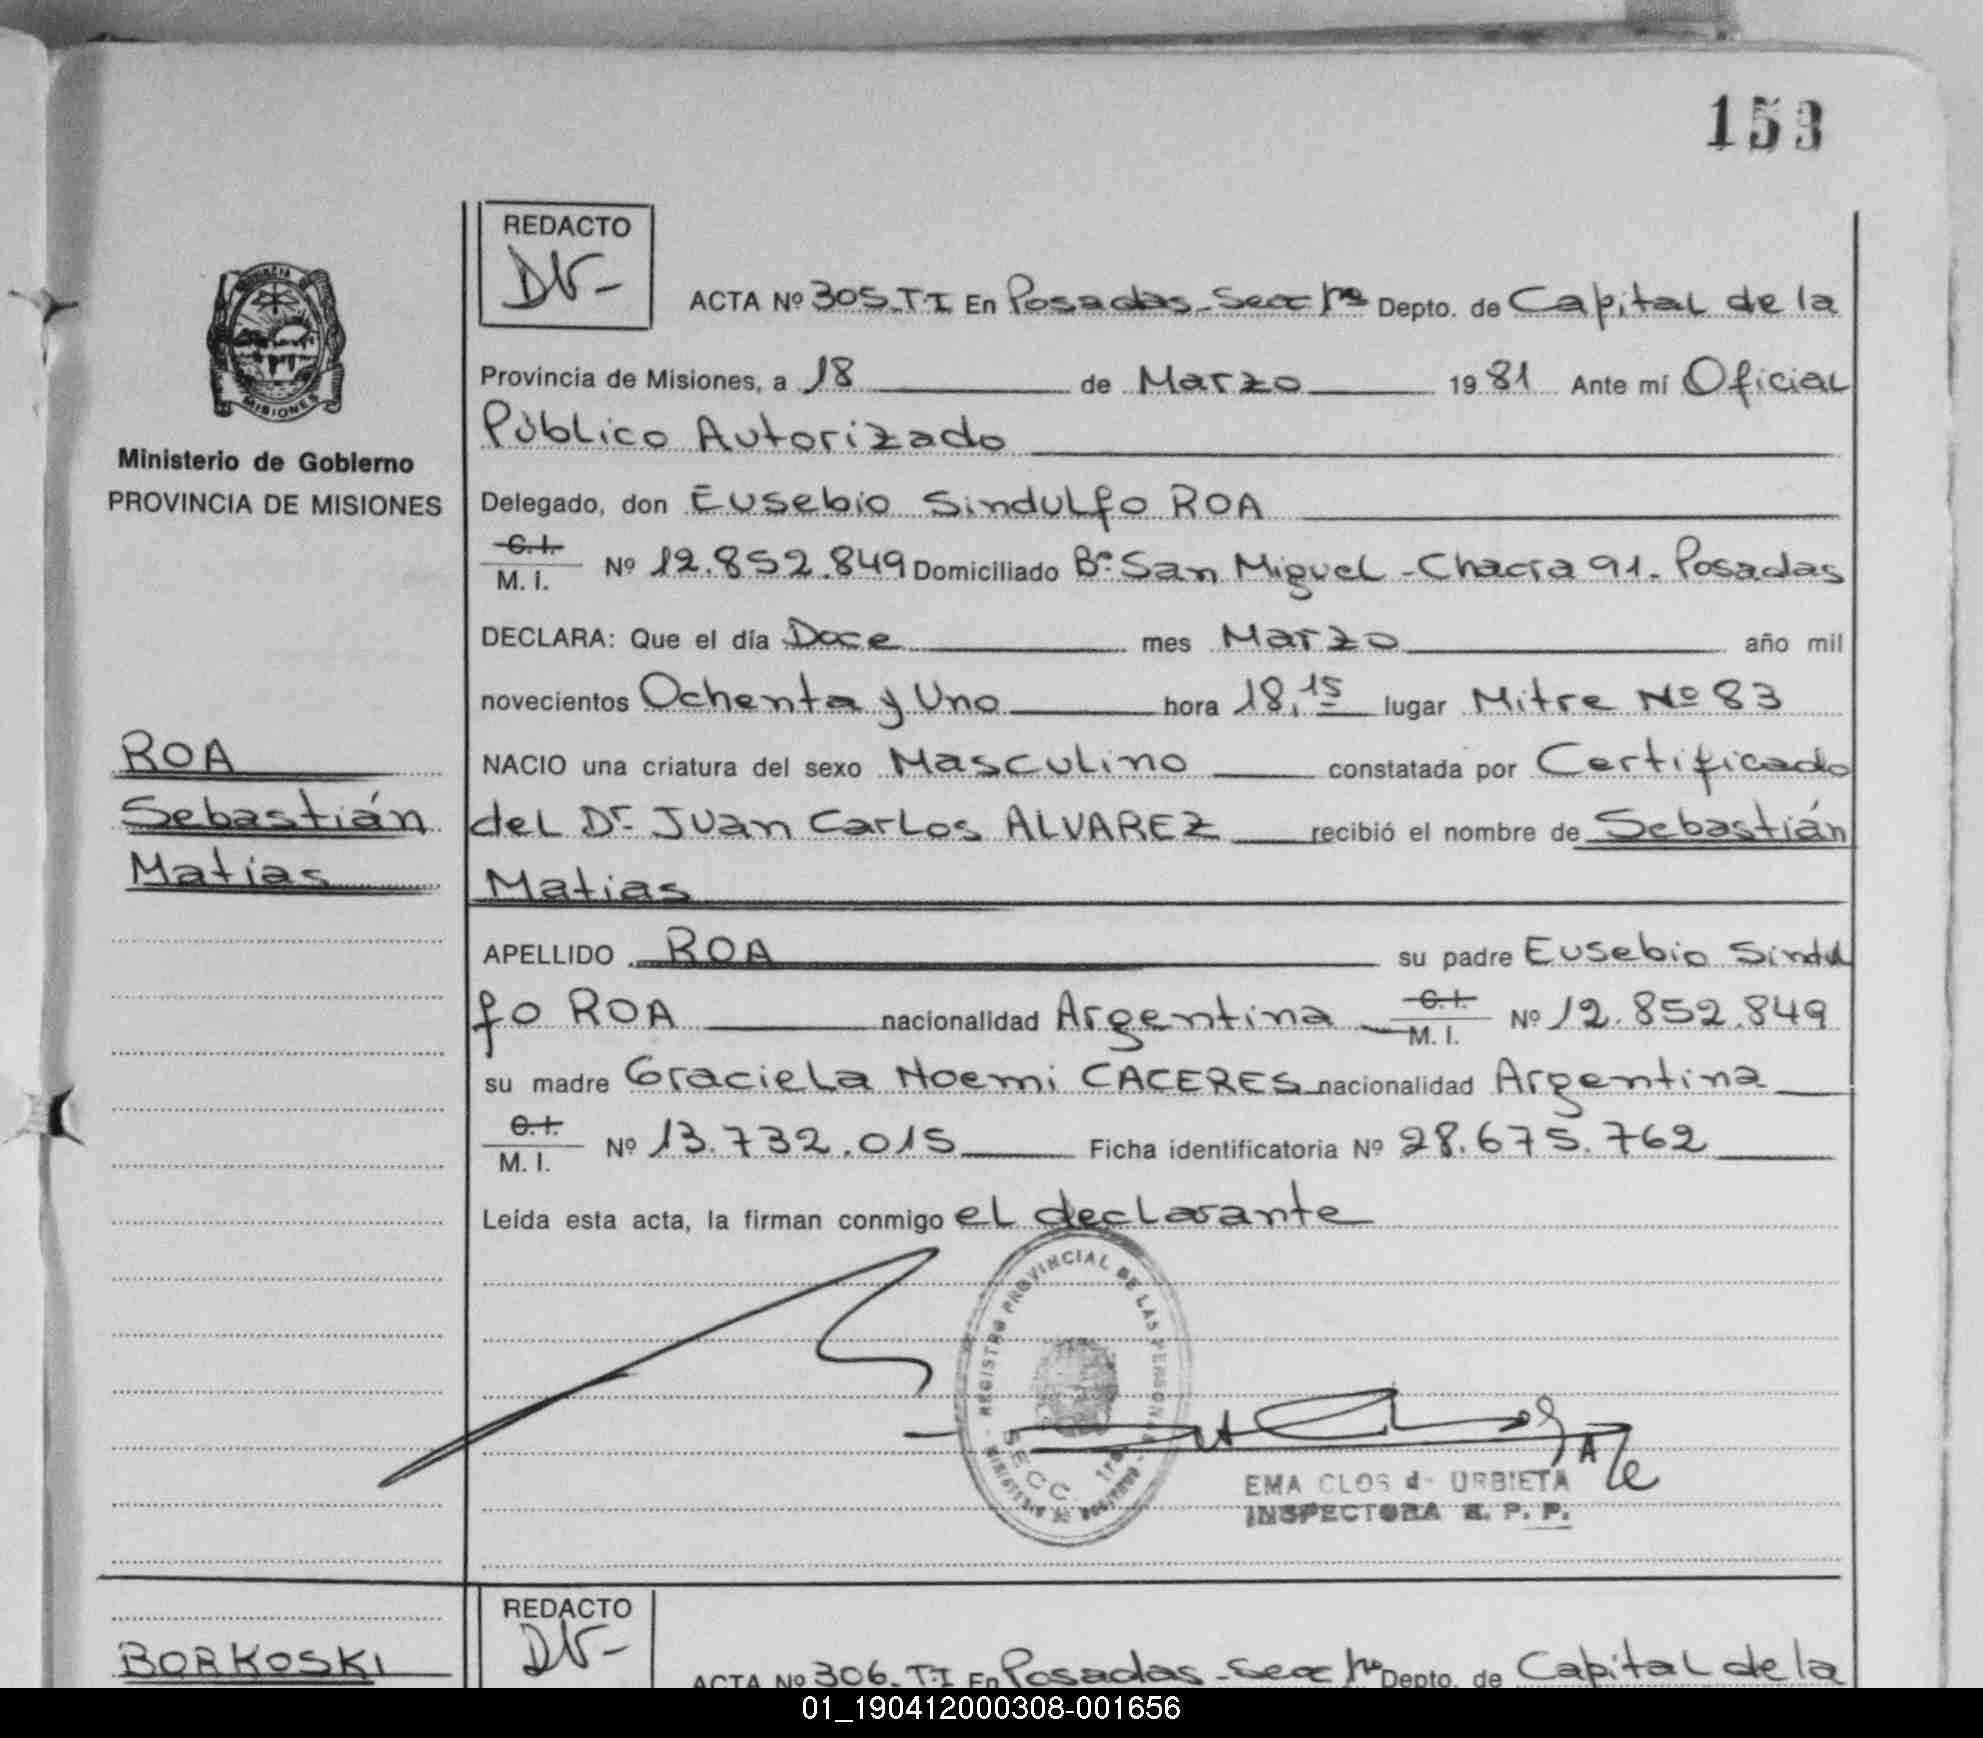 153
REDACTO
DV-
PROVINCIA
MISIONES
ACTA Nº 305.T.I En Posadas-Secc 1ra Depto. de Capital de la
Provincia de Misiones, a 18 de Marzo 1981 Ante mí Oficial
Público Autorizado
Ministerio de Gobierno
PROVINCIA DE MISIONES
Delegado, don Eusebio Sindulfo ROA
C.I.
M. I. Nº 12.852.849 Domiciliado Bº San Miguel-Chacra 91. Posadas
DECLARA: Que el día Doce mes Marzo año mil
novecientos Ochenta y Uno hora 18,15 lugar Mitre Nº 83
ROA
Sebastián
Matias
NACIO una criatura del sexo Masculino constatada por Certificado
del Dr. Juan Carlos ALVAREZ recibió el nombre de Sebastián
Matias
APELLIDO ROA su padre Eusebio Sindul
fo ROA nacionalidad Argentina C.I. M. I. Nº 12.852.849
su madre Graciela Noemi CACERES nacionalidad Argentina
C.I.
M. I. Nº 13.732.015 Ficha identificatoria Nº 28.675.762
Leída esta acta, la firman conmigo el declarante
REGISTRO PROVINCIAL DE LAS PERSONAS
SECC. 1ra
EMA CLOS de URBIETA
INSPECTORA R. P. P.
BORKOSKI
REDACTO
DV-
ACTA Nº 306.T.I En Posadas-Secc 1ra Depto. de Capital de la
01_190412000308-001656